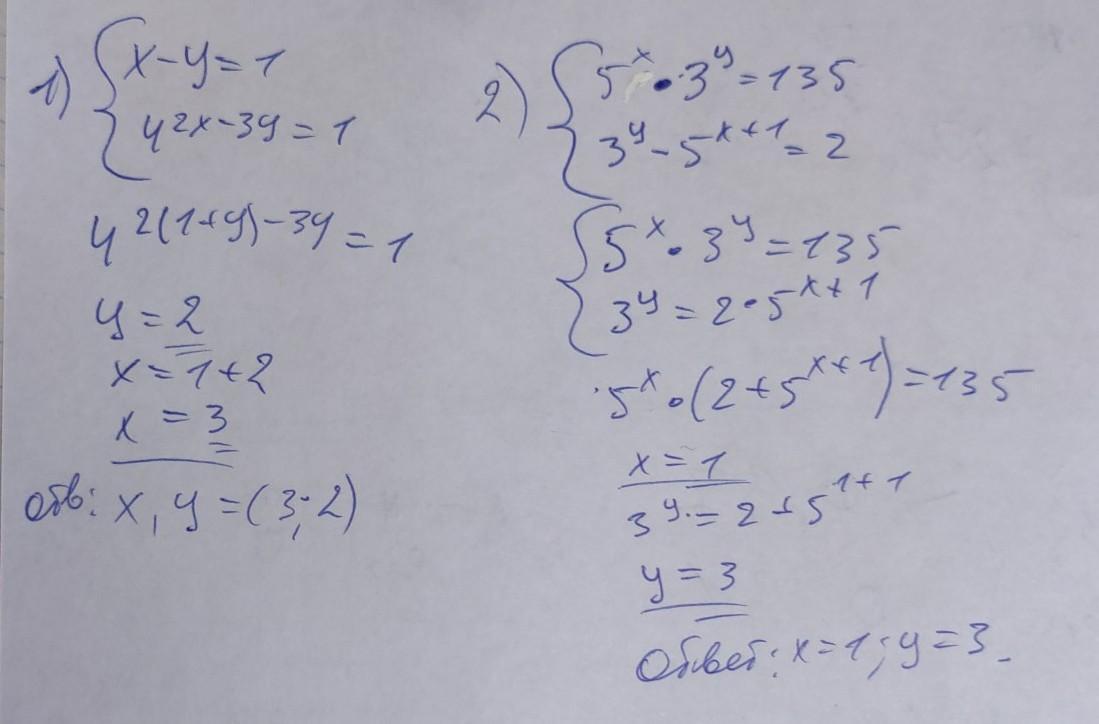 1) { x-y=1
4^{2x-3y}=1
4^{2(1+y)-3y}=1
y=2
x=1+2
x=3
отв: x, y=(3;2)
2) { 5^x·3^y=135
3^y-5^{x+1}=2
{ 5^x·3^y=135
3^y=2·5^{x+1}
5^x·(2+5^{x+1})=135
x=1
3^y=2+5^{1+1}
y=3
Ответ: x=1; y=3.